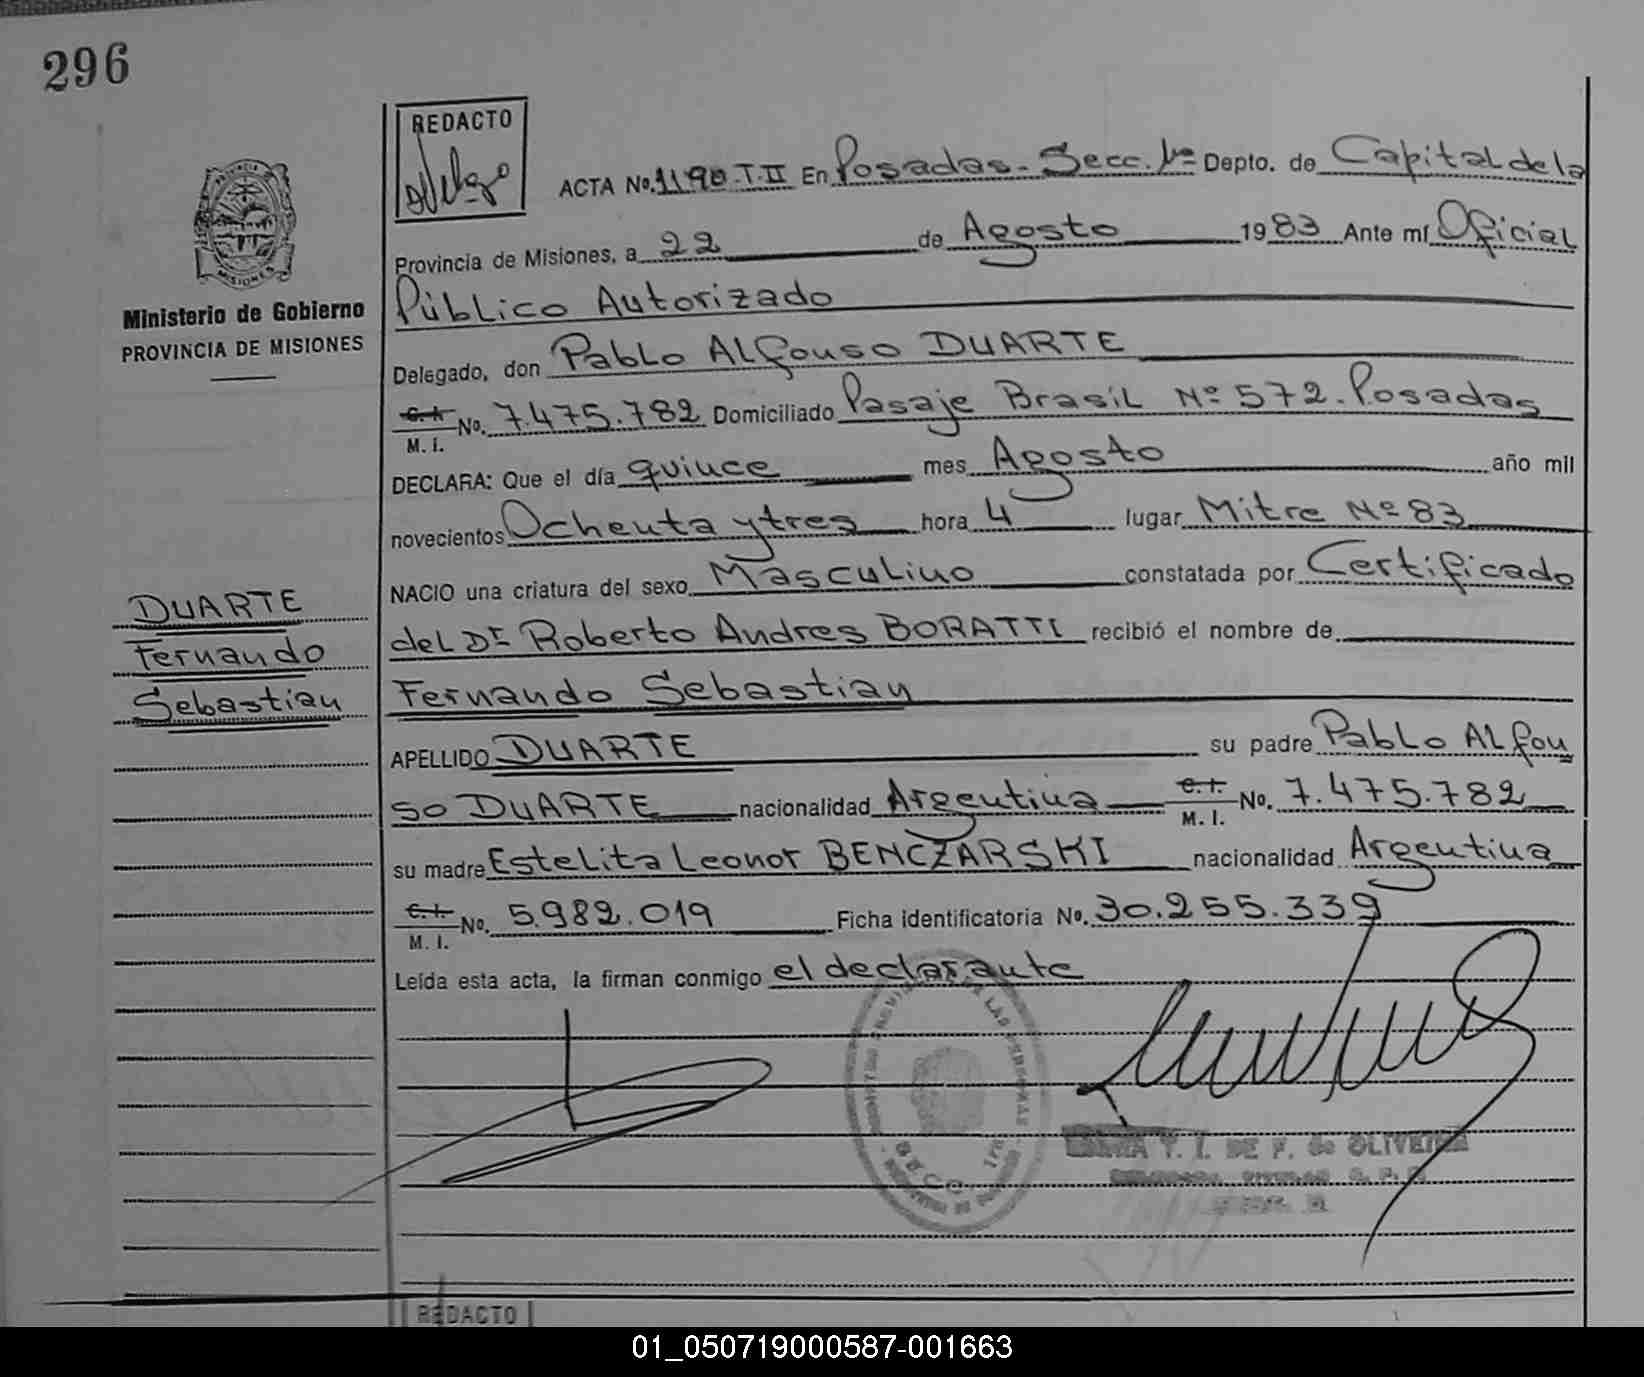 296
REDACTO
ACTA No. 1190-T.II En Posadas - Secc. 1ra Depto. de Capital de la
Provincia de Misiones, a 22 de Agosto 1983 Ante mí Oficial
Público Autorizado
Ministerio de Gobierno
PROVINCIA DE MISIONES
Delegado, don Pablo Alfonso DUARTE
C. I. M. I. No. 7.475.782 Domiciliado Pasaje Brasil Nº 572. Posadas
DECLARA: Que el día quince mes Agosto año mil
novecientos Ochenta y tres hora 4 lugar Mitre Nº 83
NACIO una criatura del sexo Masculino constatada por Certificado
del Dr Roberto Andres BORATTI recibió el nombre de
Fernando Sebastian
DUARTE
Fernando
Sebastian
APELLIDO DUARTE su padre Pablo Alfon
so DUARTE nacionalidad Argentina C. I. M. I. No. 7.475.782
su madre Estelita Leonor BENCZARSKI nacionalidad Argentina
C. I. M. I. No. 5.982.019 Ficha identificatoria No. 30.255.339
Leída esta acta, la firman conmigo el declarante
DE LAS PERSONAS
SECC. 1ra
Y. I. DE F. de OLIVEIRA
REDACTO
01_050719000587-001663